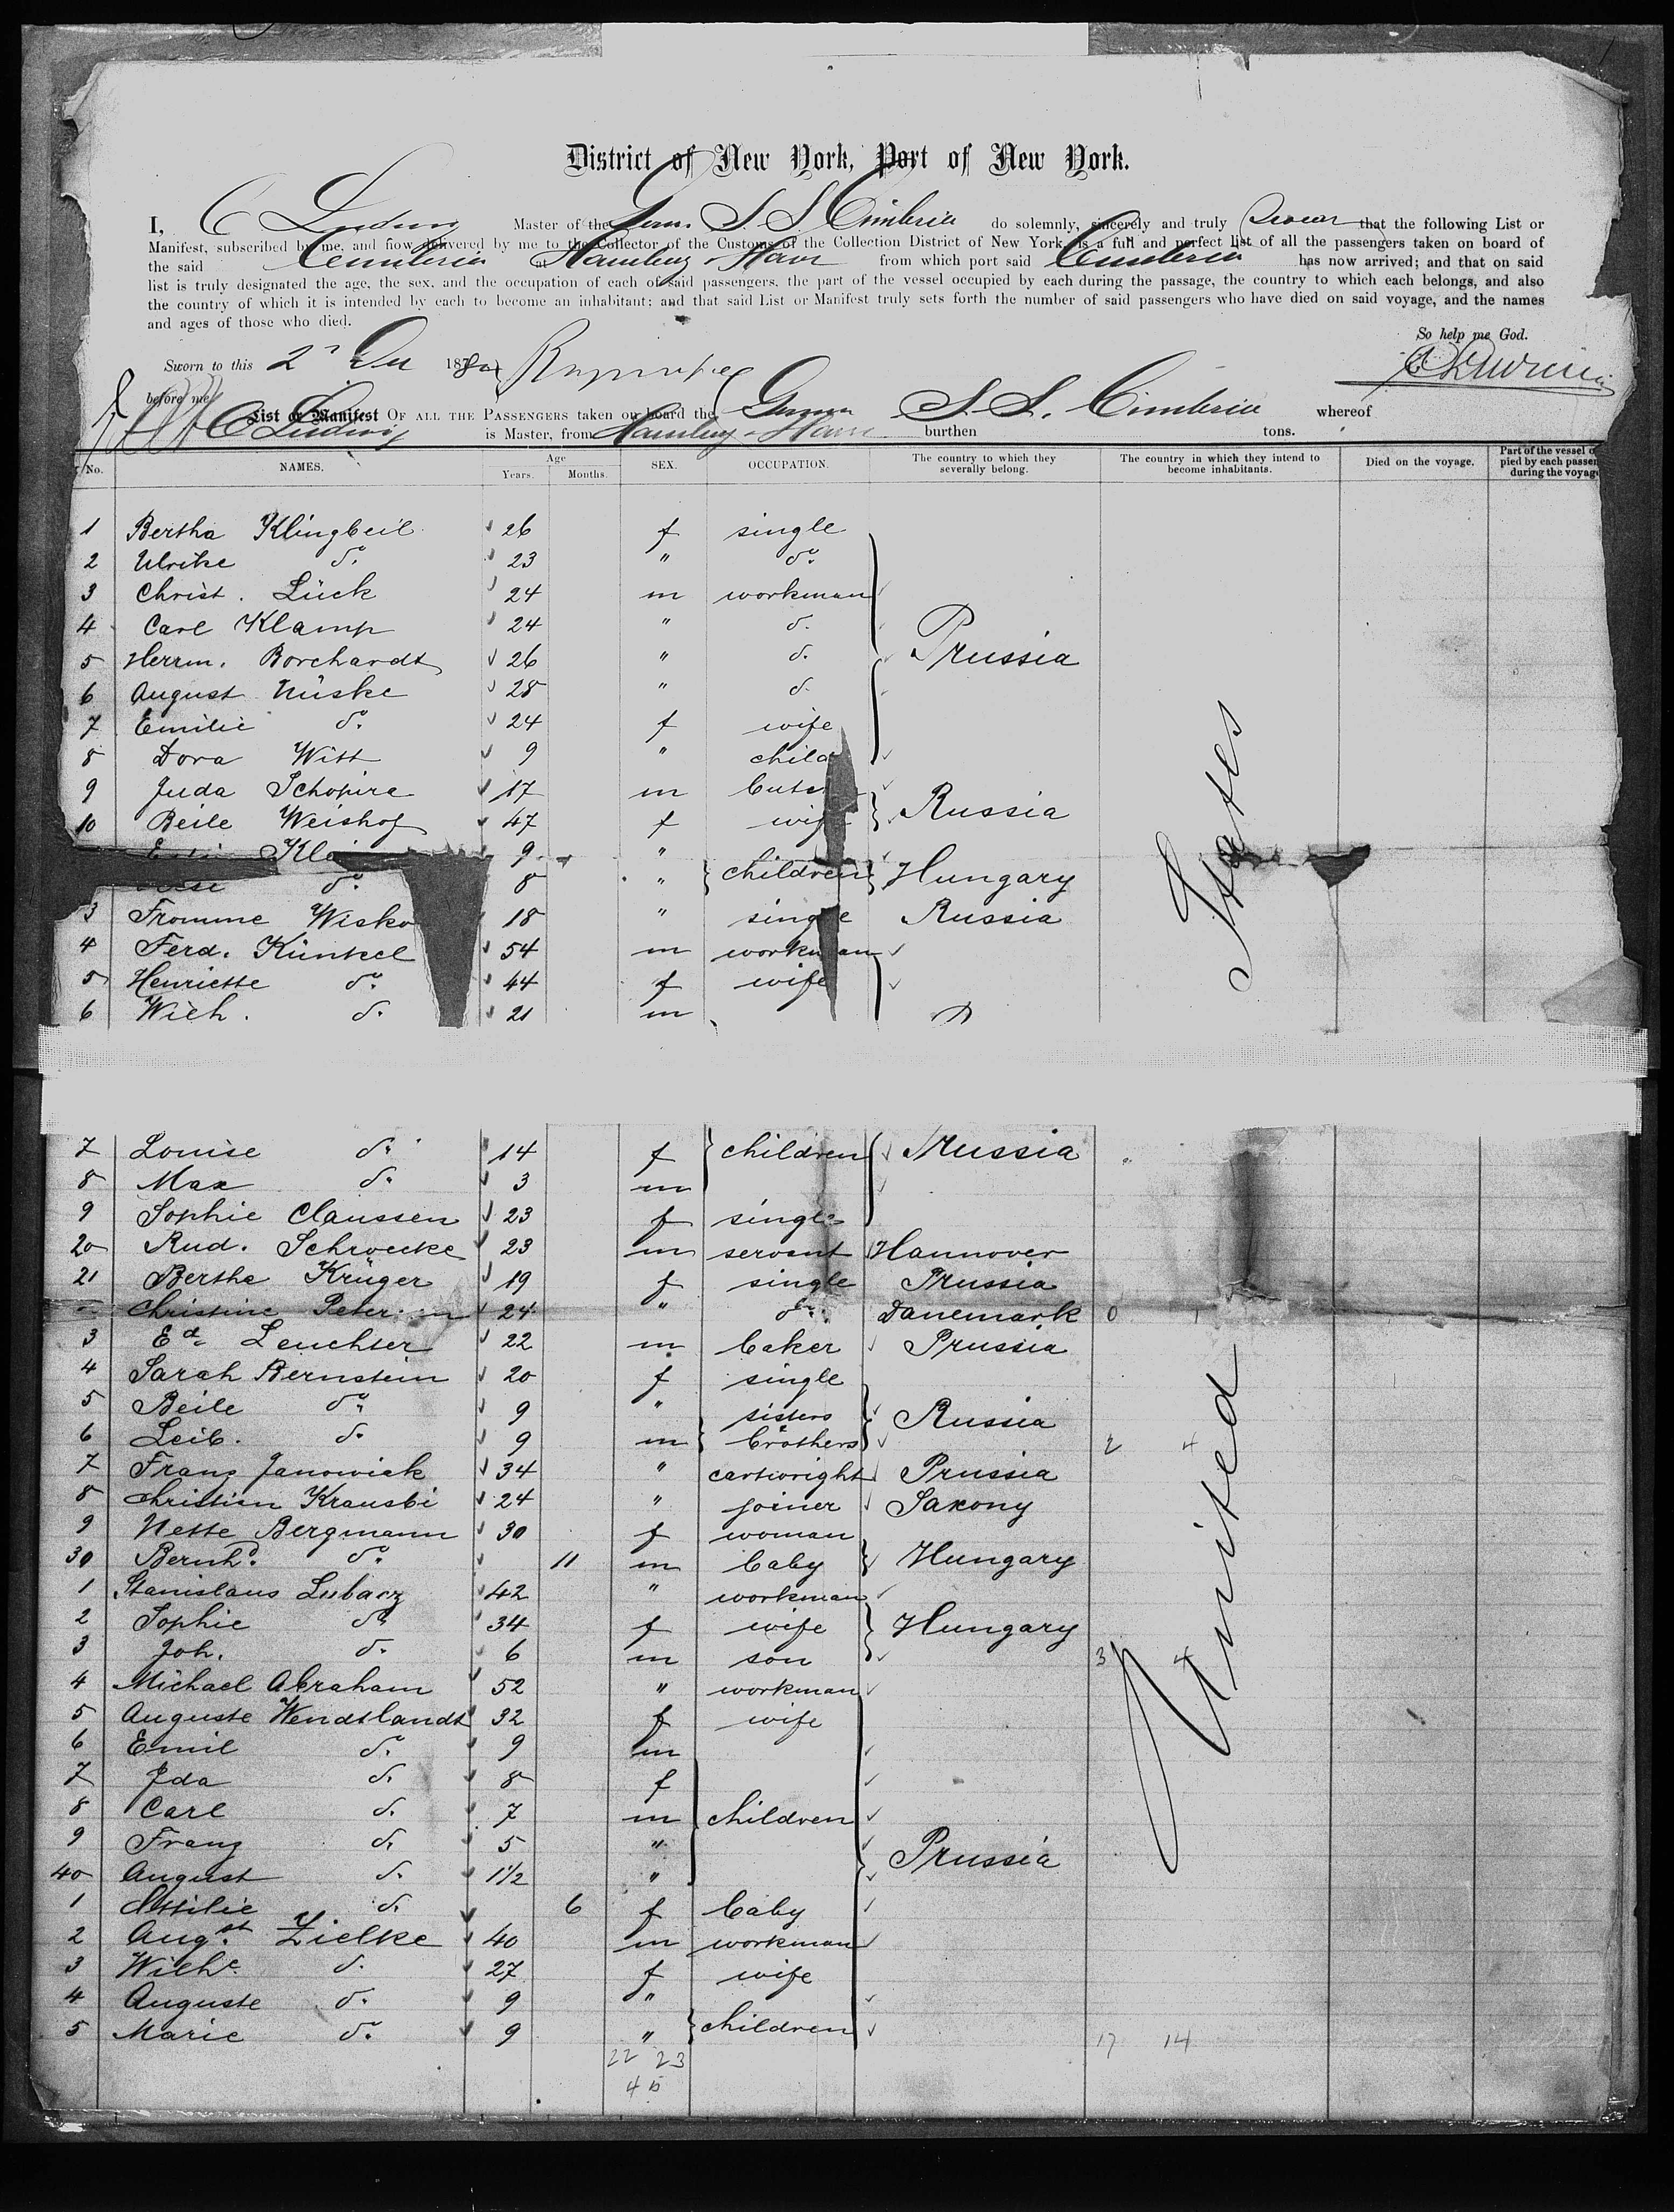 District of New York, Port of New York.
I, C Ludwig Master of the Germ. S. S. Cimbria do solemnly, sincerely and truly swear that the following List or
Manifest, subscribed by me, and now delivered by me to the Collector of the Customs of the Collection District of New York, is a full and perfect list of all the passengers taken on board of
the said Cimbria at Hamburg & Havre from which port said Cimbria has now arrived; and that on said
list is truly designated the age, the sex, and the occupation of each of said passengers, the part of the vessel occupied by each during the passage, the country to which each belongs, and also
the country of which it is intended by each to become an inhabitant; and that said List or Manifest truly sets forth the number of said passengers who have died on said voyage, and the names
and ages of those who died.
So help me God.
Sworn to this 2 Dec 1880
C Ludwig
before me
List or Manifest OF ALL THE PASSENGERS taken on board the German S. S. Cimbria whereof
C Ludwig is Master, from Hamburg & Havre burthen tons.
No. NAMES. Age Years. Months. SEX. OCCUPATION. The country to which they severally belong. The country in which they intend to become inhabitants. Died on the voyage. Part of the vessel pied by each passen during the voyag
1 Bertha Klingbeil 26 f single
2 Ulrike do. 23 " do.
3 Christ. Lück 24 m workman
4 Carl Klamp 24 " d.
5 Herrm. Borchardt 26 " d. Prussia
6 August Nüske 28 " d.
7 Emilie do. 24 f wife
8 Dora Witt 9 " child
9 Juda Schopira 17 m butc
10 Beile Weishof 47 f wife Russia
Kle 9 "
do. 8 " children Hungary
3 Fromme Wisko 18 " single Russia
4 Ferd. Künkel 54 m workman
5 Henriette do. 44 f wife
6 Wilh. d. 21 m
7 Louise d. 14 f children Prussia
8 Max d. 3 m
9 Sophie Claussen 23 f single
20 Rud. Schroecke 23 m servant Hannover
21 Bertha Krüger 19 f single Prussia
Christine Peter n 24 " do. Danemark 0 1
3 Ed. Leuchter 22 m baker Prussia
4 Sarah Bernstein 20 f single
5 Beile do. 9 " sisters Russia
6 Leib. d. 9 m brothers 2 4
7 Franz Janowiak 34 " cartwright Prussia
8 Christian Krausbi 24 " joiner Saxony
9 Nette Bergmann 30 f woman
30 Bernhd. do. 11 m baby Hungary
1 Stanislaus Lubarz 42 " workman
2 Sophie do. 34 f wife Hungary
3 Joh. d. 6 m son 3 4
4 Michael Abraham 52 " workman
5 Auguste Wendtlandt 32 f wife
6 Emil do. 9 m
7 Ida d. 8 f
8 Carl d. 7 m children
9 Franz d. 5 " Prussia
40 August d. 1½ "
1 Ottilie d. 6 f baby
2 Augst. Zielke 40 m workman
3 Wilhe. d. 27 f wife
4 Auguste d. 9 "
5 Marie do. 9 " children 17 14
22 23
45
United States